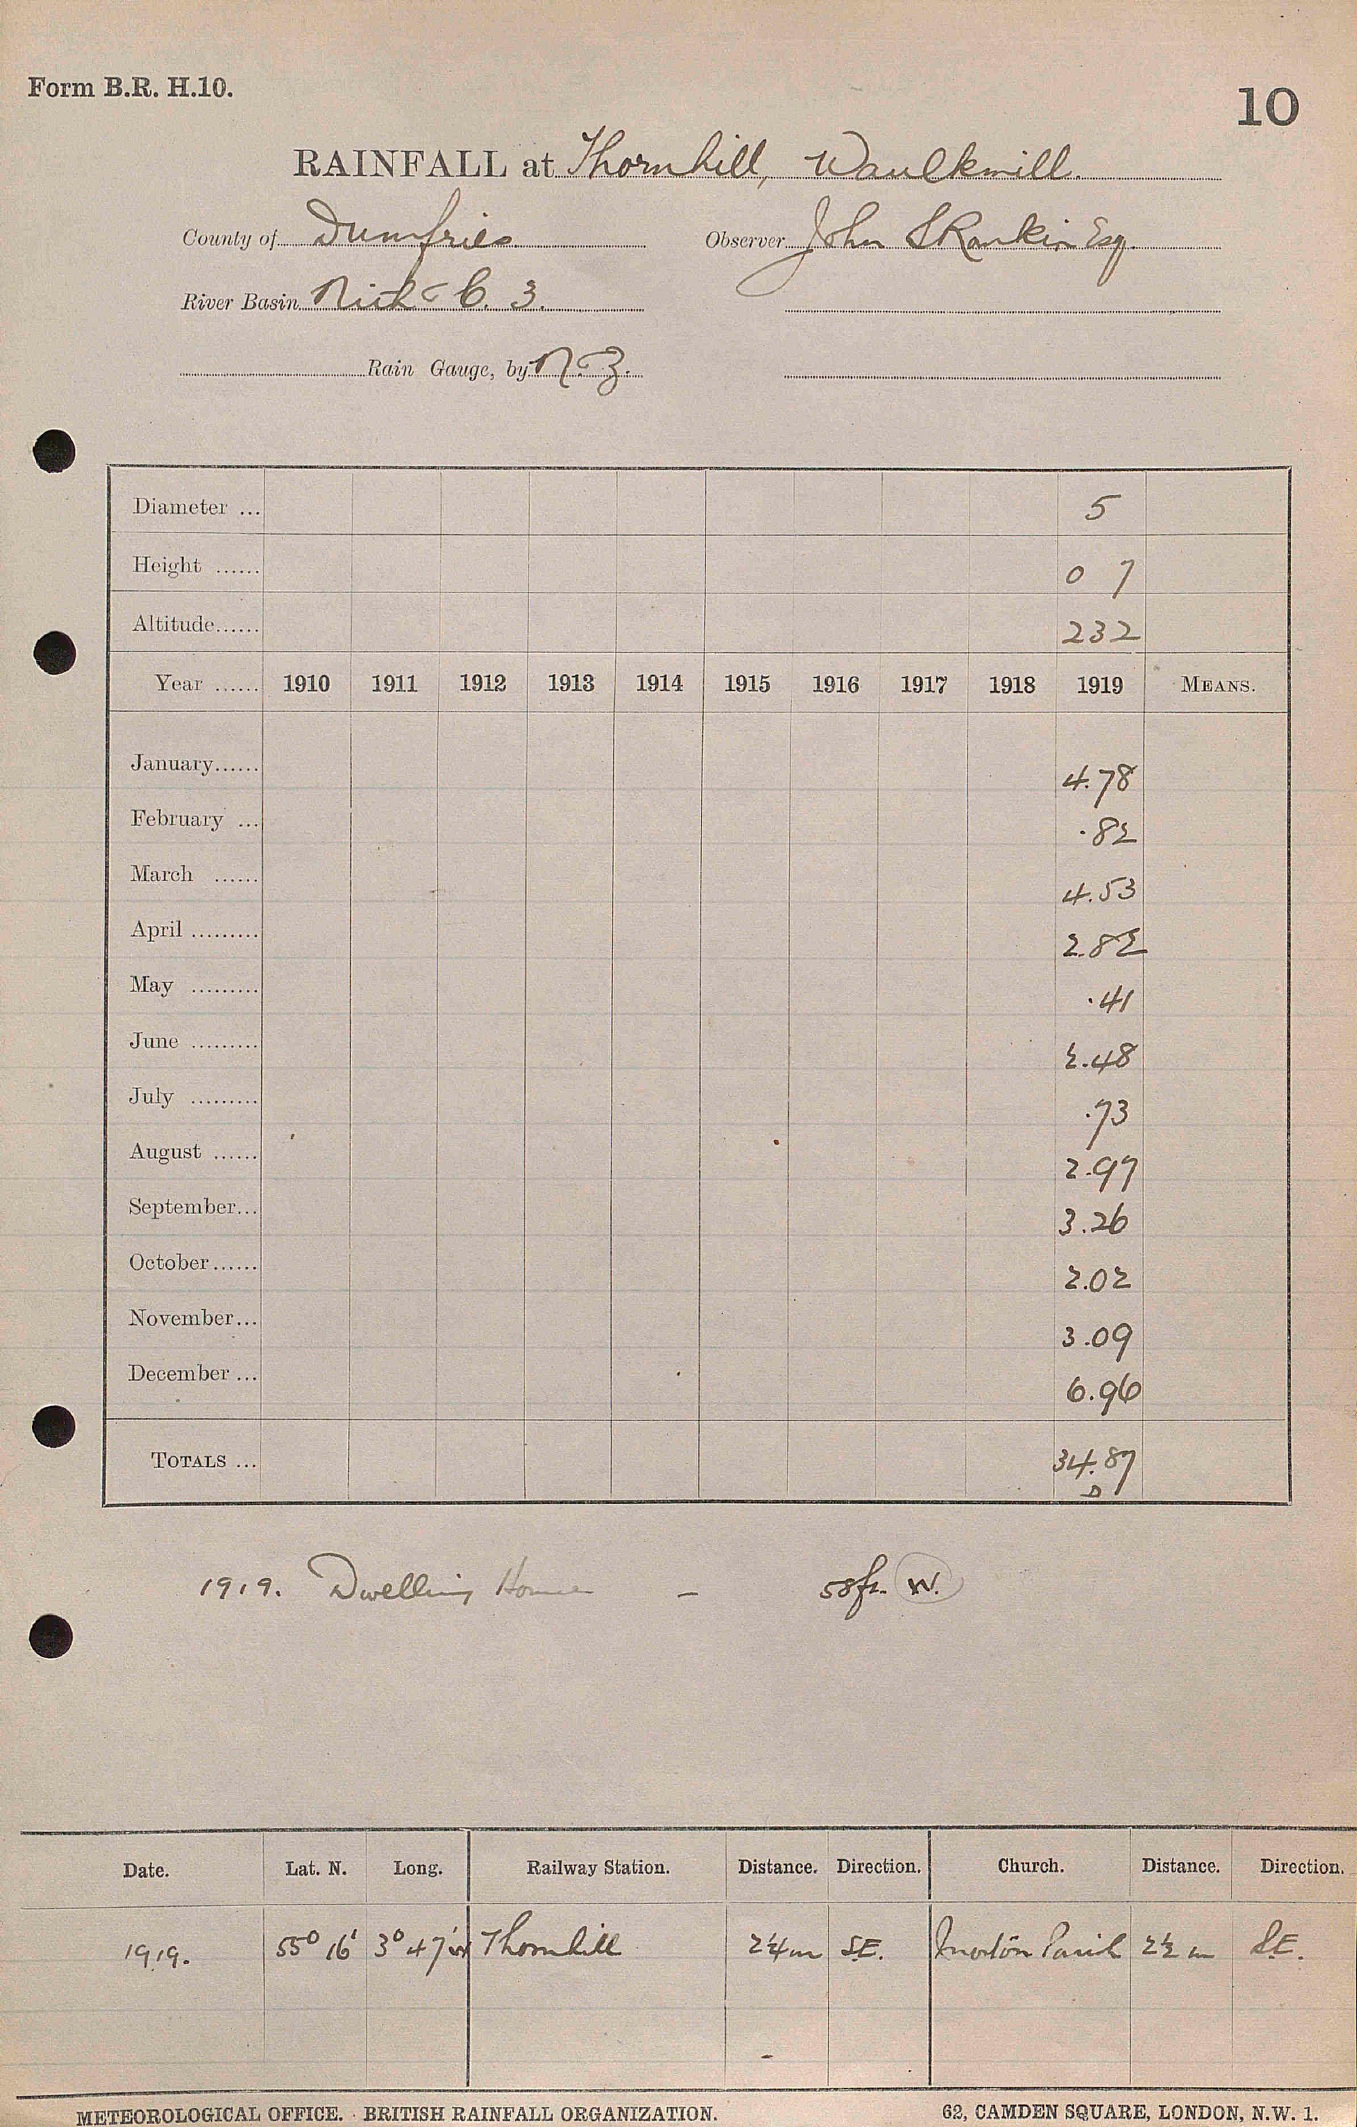 Form B.R. H.10.
10
RAINFALL at Thornhill, Waulkmill.
County of Dumfries Observer John S Rankin Esq.
River Basin Nith C. 3.
Rain Gauge, by N. Z.
Diameter ... 5
Height ...... 0 7
Altitude...... 232
Year ...... 1910 1911 1912 1913 1914 1915 1916 1917 1918 1919 MEANS.
January...... 4.78
February ... .82
March ...... 4.53
April ......... 2.82
May ......... .41
June ......... 2.48
July ......... .73
August ...... 2.97
September... 3.26
October...... 2.02
November... 3.09
December ... 6.96
TOTALS ... 34.87
D
1919. Dwelling House – 58ft. W.
Date. Lat. N. Long. Railway Station. Distance. Direction. Church. Distance. Direction.
1919. 55° 16' 3° 47' W Thornhill 2¼ m SE. Morton Parish 2½ m S.E.
METEOROLOGICAL OFFICE. BRITISH RAINFALL ORGANIZATION. 62, CAMDEN SQUARE, LONDON, N.W. 1.